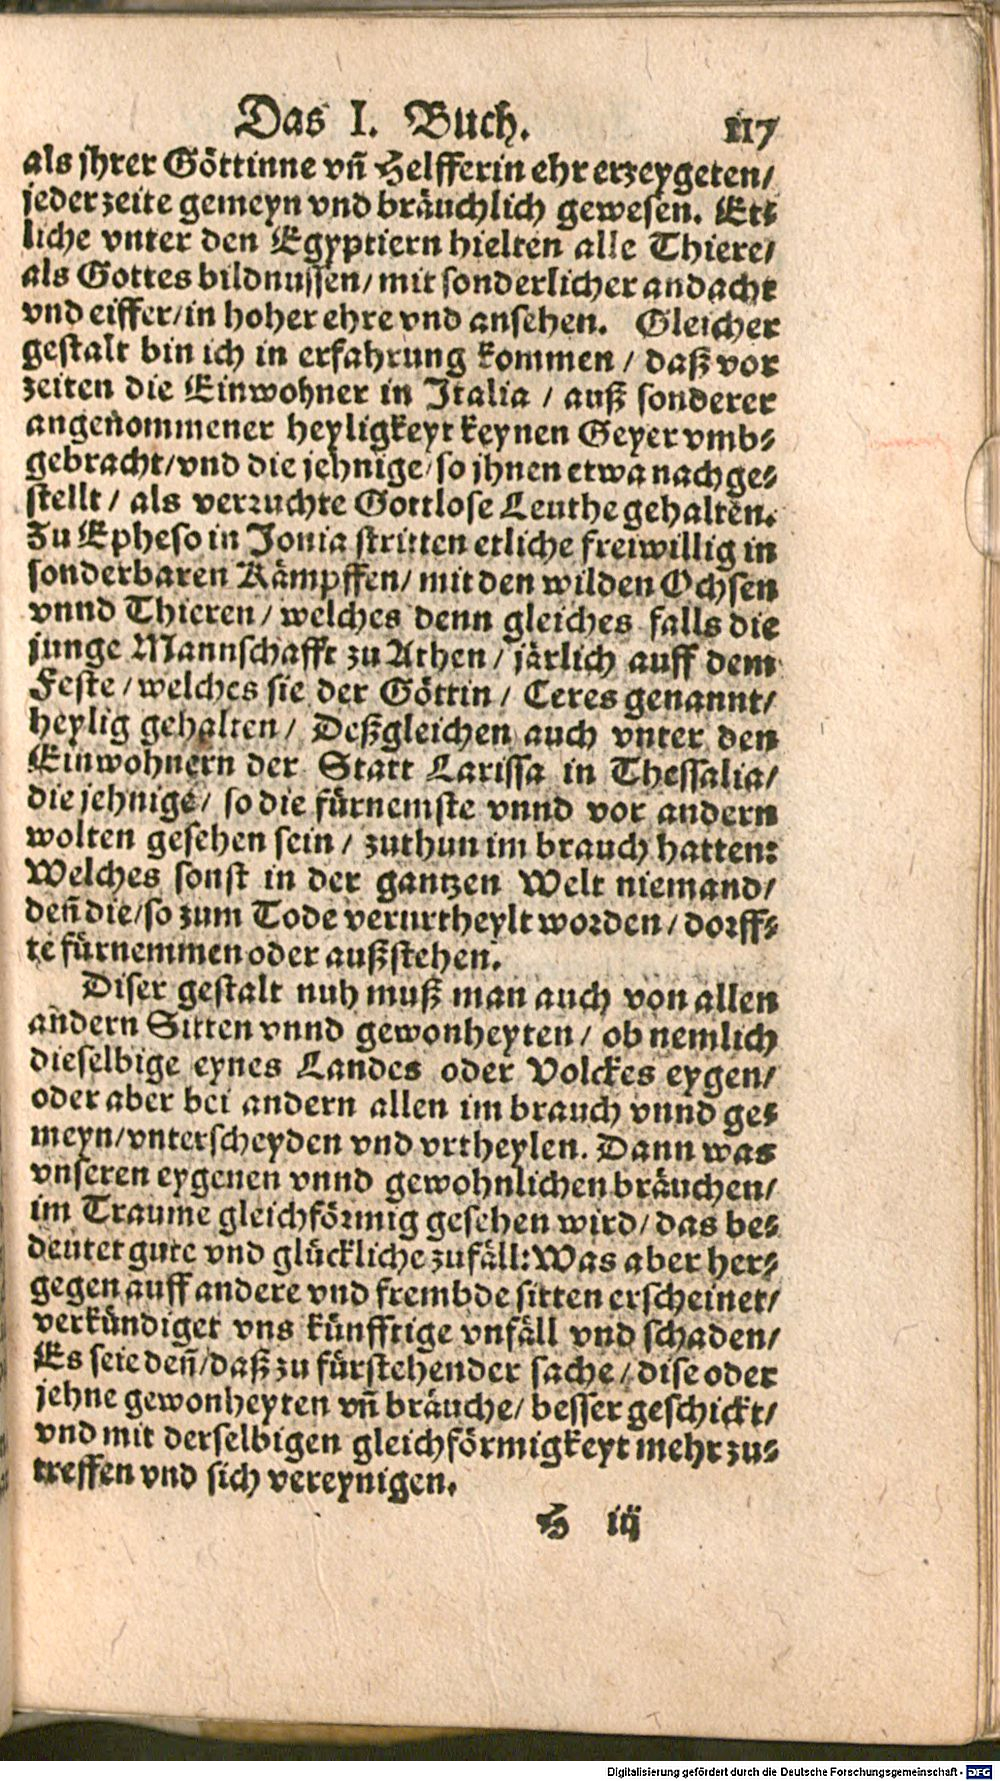 Das I. Buch. 117
als jhrer Göttinne vñ Helfferin ehr erzeygeten/
jeder zeite gemeyn vnd bräuchlich gewesen. Et⸗
liche vnter den Egyptiern hielten alle Thiere/
als Gottes bildnussen/ mit sonderlicher andacht
vnd eiffer/in hoher ehre vnd ansehen. Gleicher
gestalt bin ich in erfahrung kommen / daß vor
zeiten die Einwohner in Italia / auß sonderer
angenommener heyligkeyt keynen Geyer vmb⸗
gebracht/vnd die jehnige/so jhnen etwa nachge⸗
stellt / als verruchte Gottlose Leuthe gehalten.
Zu Epheso in Jonia stritten etliche freiwillig in
sonderbaren Kämpffen/ mit den wilden Ochsen
vnnd Thieren / welches denn gleiches falls die
junge Mannschafft zu Athen / järlich auff dem
Feste / welches sie der Göttin / Ceres genannt/
heylig gehalten / Deßgleichen auch vnter den
Einwohnern der Statt Larissa in Thessalia/
die jehnige/ so die fürnemste vnnd vor andern
wolten gesehen sein / zuthun im brauch hatten:
Welches sonst in der gantzen Welt niemand/
deñ die/so zum Tode verurtheylt worden / dorff⸗
te fürnemmen oder außstehen.
Diser gestalt nuh muß man auch von allen
andern Sitten vnnd gewonheyten / ob nemlich
dieselbige eynes Landes oder Volckes eygen/
oder aber bei andern allen im brauch vnnd ge⸗
meyn/vnterscheyden vnd vrtheylen. Dann was
vnseren eygenen vnnd gewohnlichen bräuchen/
im Traume gleichförmig gesehen wird/ das be⸗
deutet gute vnd glückliche zufäll: Was aber her⸗
gegen auff andere vnd frembde sitten erscheinet/
verkündiget vns künfftige vnfäll vnd schaden/
Es seie deñ/daß zu fürstehender sache / dise oder
jehne gewonheyten vñ bräuche/ besser geschickt/
vnd mit derselbigen gleichförmigkeyt mehr zu⸗
treffen vnd sich vereynigen.
H iij
Digitalisierung gefördert durch die Deutsche Forschungsgemeinschaft - DFG